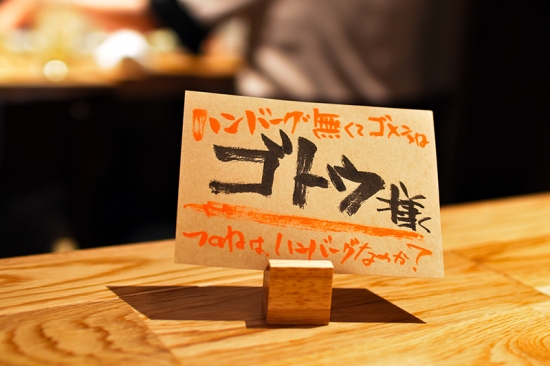 ハンバーグ無くてゴメンネは
ゴトウ準
つねはハンバーグなのか?